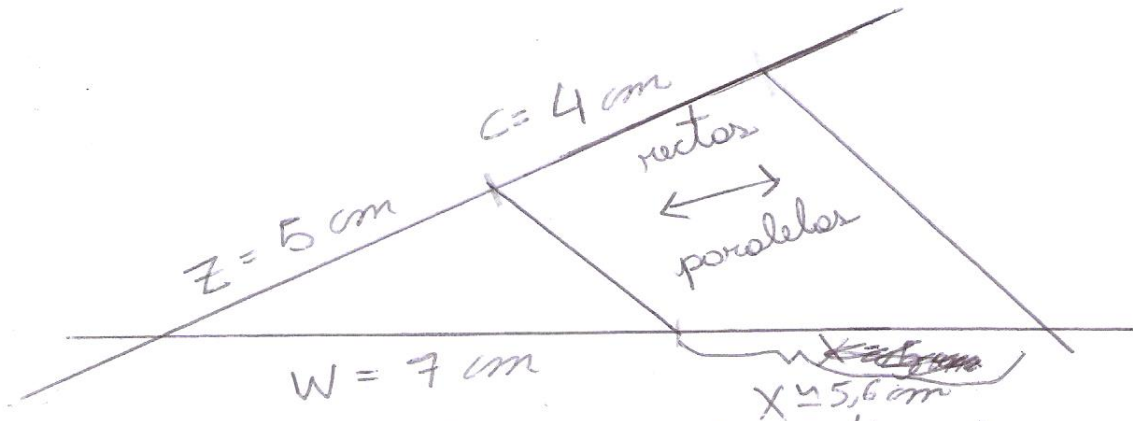 C= 4 cm
rectas
paralelas
Z = 5 cm
W = 7 cm
X ≃ 5,6 cm